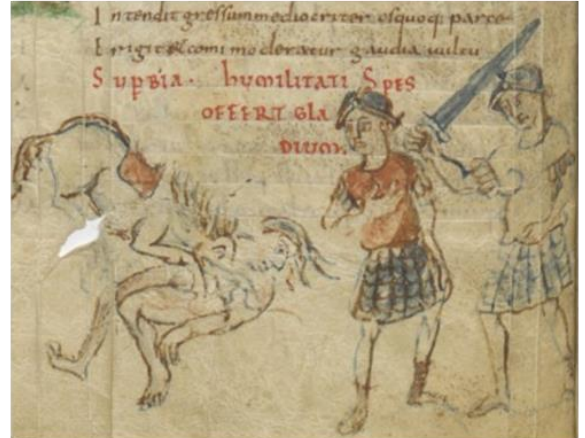 Intendit gressum mediocriter osquoq; parce
Erigit & comi moderatur gaudia uultu
Supbia · humilitati Spes
OFFERT GLA
DIUM.